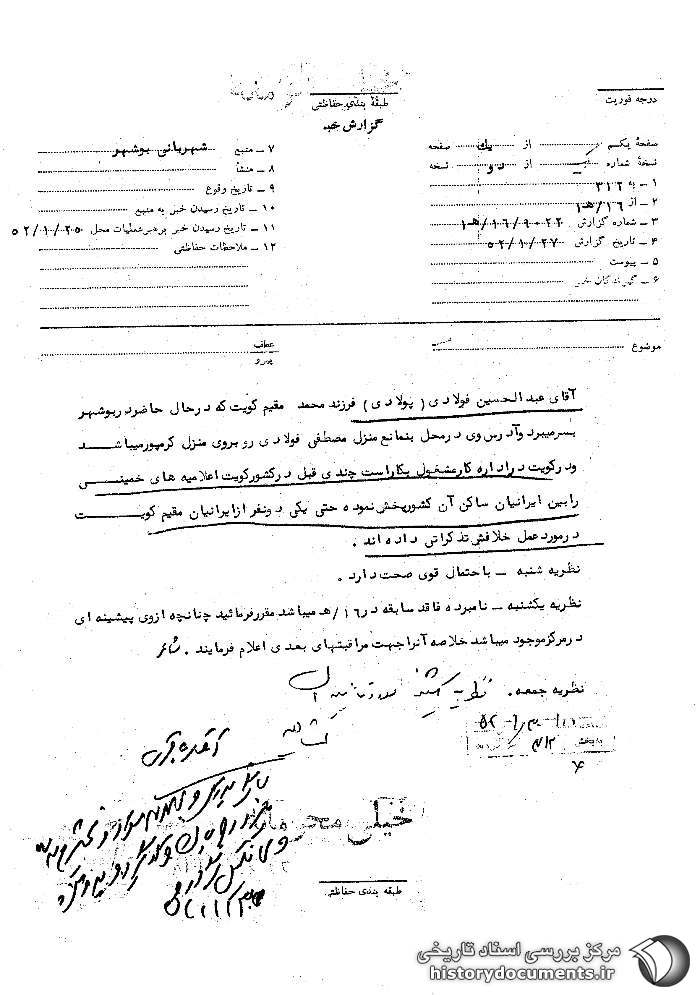 طبقه بندی حفاظتی
گزارش خبر
درجه فوریت
صفحهٔ یکم از یک صفحه
نسخهٔ شماره از دو نسخه
۱ ـ به ۳۱۲
۲ ـ از ۱۶/هـ۱
۳ ـ شماره گزارش ۹۰۲۲/۱۶/هـ۱
۴ ـ تاریخ گزارش ۵۲/۱۰/۲۷
۵ ـ پیوست
۶ ـ گیرندگان خبر
۷ ـ منبع شهربانی بوشهر
۸ ـ منشأ
۹ ـ تاریخ وقوع
۱۰ ـ تاریخ رسیدن خبر به منبع
۱۱ ـ تاریخ رسیدن خبر به رهبر عملیات محل ۵۲/۱۰/۲۵
۱۲ ـ ملاحظات حفاظتی
موضوع
عطف
پیرو
آقای عبدالحسین فولادی ( پولادی ) فرزند محمد مقیم کویت که درحال حاضر دربوشهر
بسرمیبرد وآدرس وی درمحل بنمانع منزل مصطفی فولادی روبروی منزل کرمپورمیباشد
ودرکویت دراداره کارمشغول بکاراست چندی قبل درکشورکویت اعلامیه های خمینی
رابین ایرانیان ساکن آن کشورپخش نموده حتی یکی دونفر ازایرانیان مقیم کویت
درمورد عمل خلافش تذکراتی داده اند .
نظریه شنبه ـ باحتمال قوی صحت دارد .
نظریه یکشنبه ـ نامبرده فاقد سابقه در۱۶/هـ میباشد مقررفرمائید چنانچه ازوی پیشینه ای
درمرکزموجود میباشد خلاصه آنراجهت مراقبتهای بعدی اعلام فرمایند .
نظریه جمعه . نظریه یکشنبه
به بخش ۳۱۲
خیلی محرمانه
طبقه بندی حفاظتی
مرکز بررسی اسناد تاریخی
historydocuments.ir